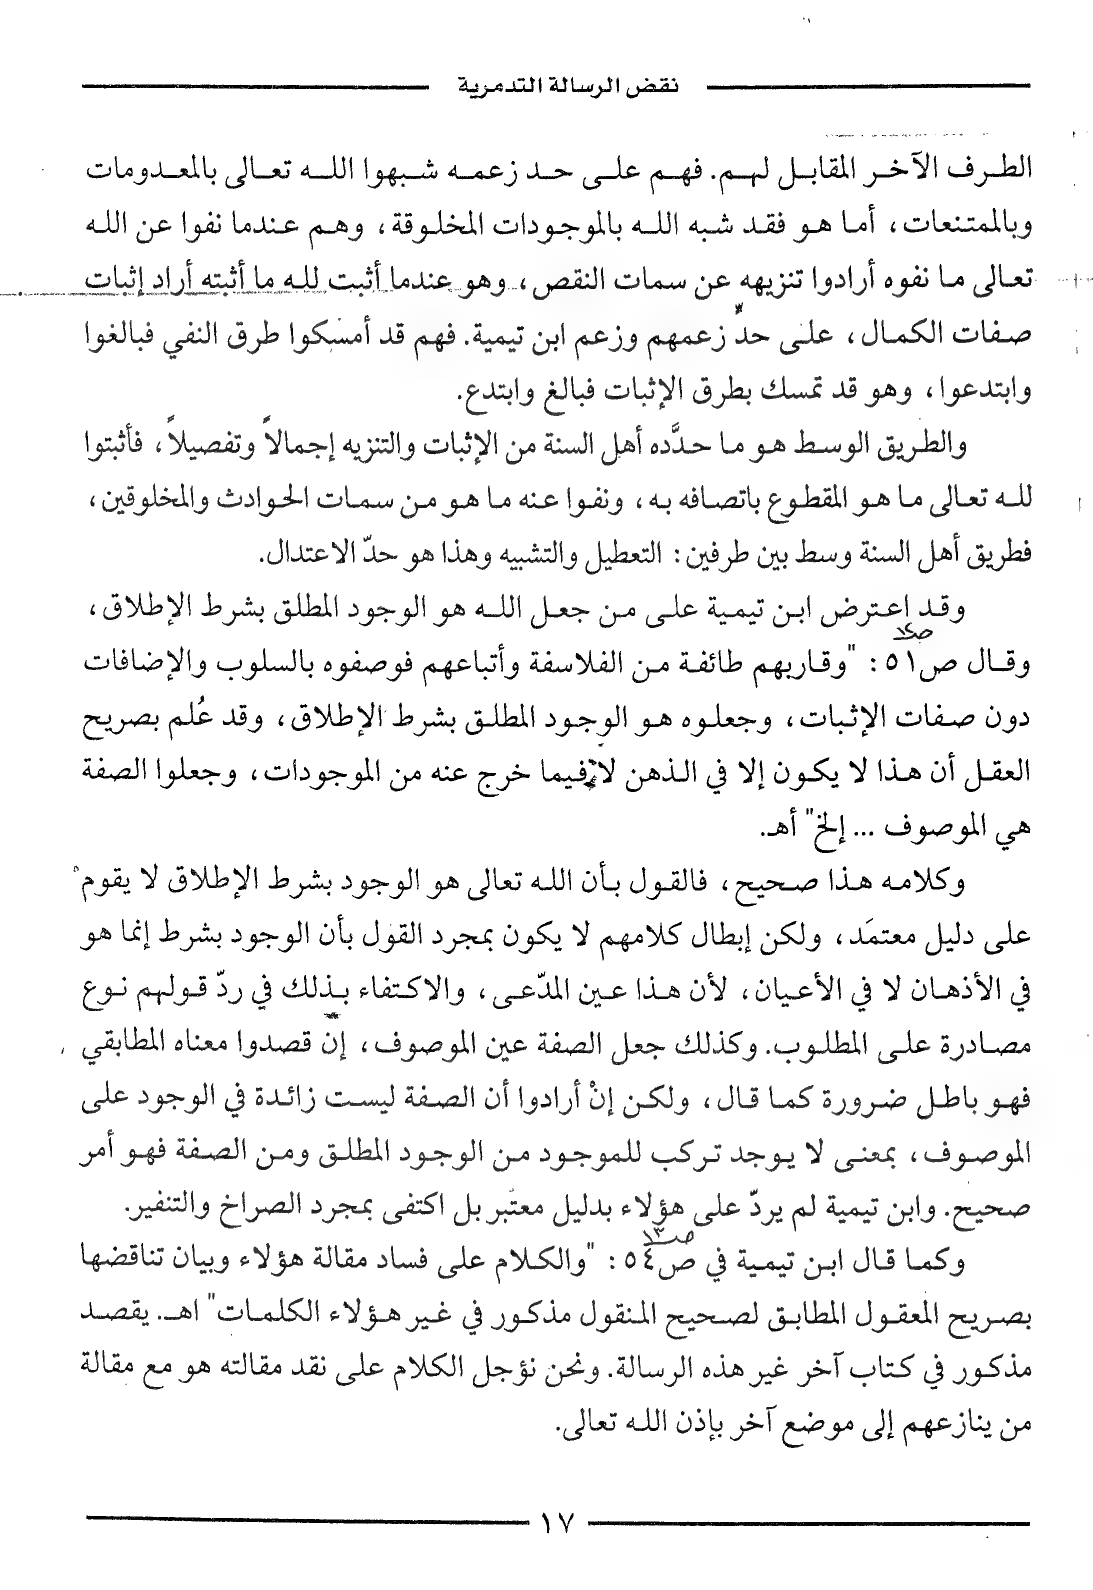 نقض الرسالة التدمرية
الطرف الآخر المقابل لهم. فهم على حد زعمه شبهوا الله تعالى بالمعدومات
وبالممتنعات، أما هو فقد شبه الله بالموجودات المخلوقة، وهم عندما نفوا عن الله
تعالى ما نفوه أرادوا تنزيهه عن سمات النقص، وهو عندما أثبت لله ما أثبته أراد إثبات
صفات الكمال، على حدِّ زعمهم وزعم ابن تيمية. فهم قد أمسكوا طرق النفي فبالغوا
وابتدعوا، وهو قد تمسك بطرق الإثبات فبالغ وابتدع.
والطريق الوسط هو ما حدَّده أهل السنة من الإثبات والتنزيه إجمالاً وتفصيلاً، فأثبتوا
لله تعالى ما هو المقطوع باتصافه به، ونفوا عنه ما هو من سمات الحوادث والمخلوقين،
فطريق أهل السنة وسط بين طرفين: التعطيل والتشبيه وهذا هو حدّ الاعتدال.
وقد اعترض ابن تيمية على من جعل الله هو الوجود المطلق بشرط الإطلاق،
وقال ص٥١: "وقاربهم طائفة من الفلاسفة وأتباعهم فوصفوه بالسلوب والإضافات
دون صفات الإثبات، وجعلوه هو الوجود المطلق بشرط الإطلاق، وقد عُلم بصريح
العقل أن هذا لا يكون إلا في الذهن لا فيما خرج عنه من الموجودات، وجعلوا الصفة
هي الموصوف ... إلخ" أهـ.
وكلامه هذا صحيح، فالقول بأن الله تعالى هو الوجود بشرط الإطلاق لا يقوم
على دليل معتمَد، ولكن إبطال كلامهم لا يكون بمجرد القول بأن الوجود بشرط إنما هو
في الأذهان لا في الأعيان، لأن هذا عين المدّعى، والاكتفاء بذلك في ردّ قولهم نوع
مصادرة على المطلوب. وكذلك جعل الصفة عين الموصوف، إن قصدوا معناه المطابقي
فهو باطل ضرورة كما قال، ولكن إنْ أرادوا أن الصفة ليست زائدة في الوجود على
الموصوف، بمعنى لا يوجد تركب للموجود من الوجود المطلق ومن الصفة فهو أمر
صحيح. وابن تيمية لم يردّ على هؤلاء بدليل معتبر بل اكتفى بمجرد الصراخ والتنفير.
وكما قال ابن تيمية في ص٥٤: "والكلام على فساد مقالة هؤلاء وبيان تناقضها
بصريح المعقول المطابق لصحيح المنقول مذكور في غير هؤلاء الكلمات" اهـ. يقصد
مذكور في كتاب آخر غير هذه الرسالة. ونحن نؤجل الكلام على نقد مقالته هو مع مقالة
من ينازعهم إلى موضع آخر بإذن الله تعالى.
١٧